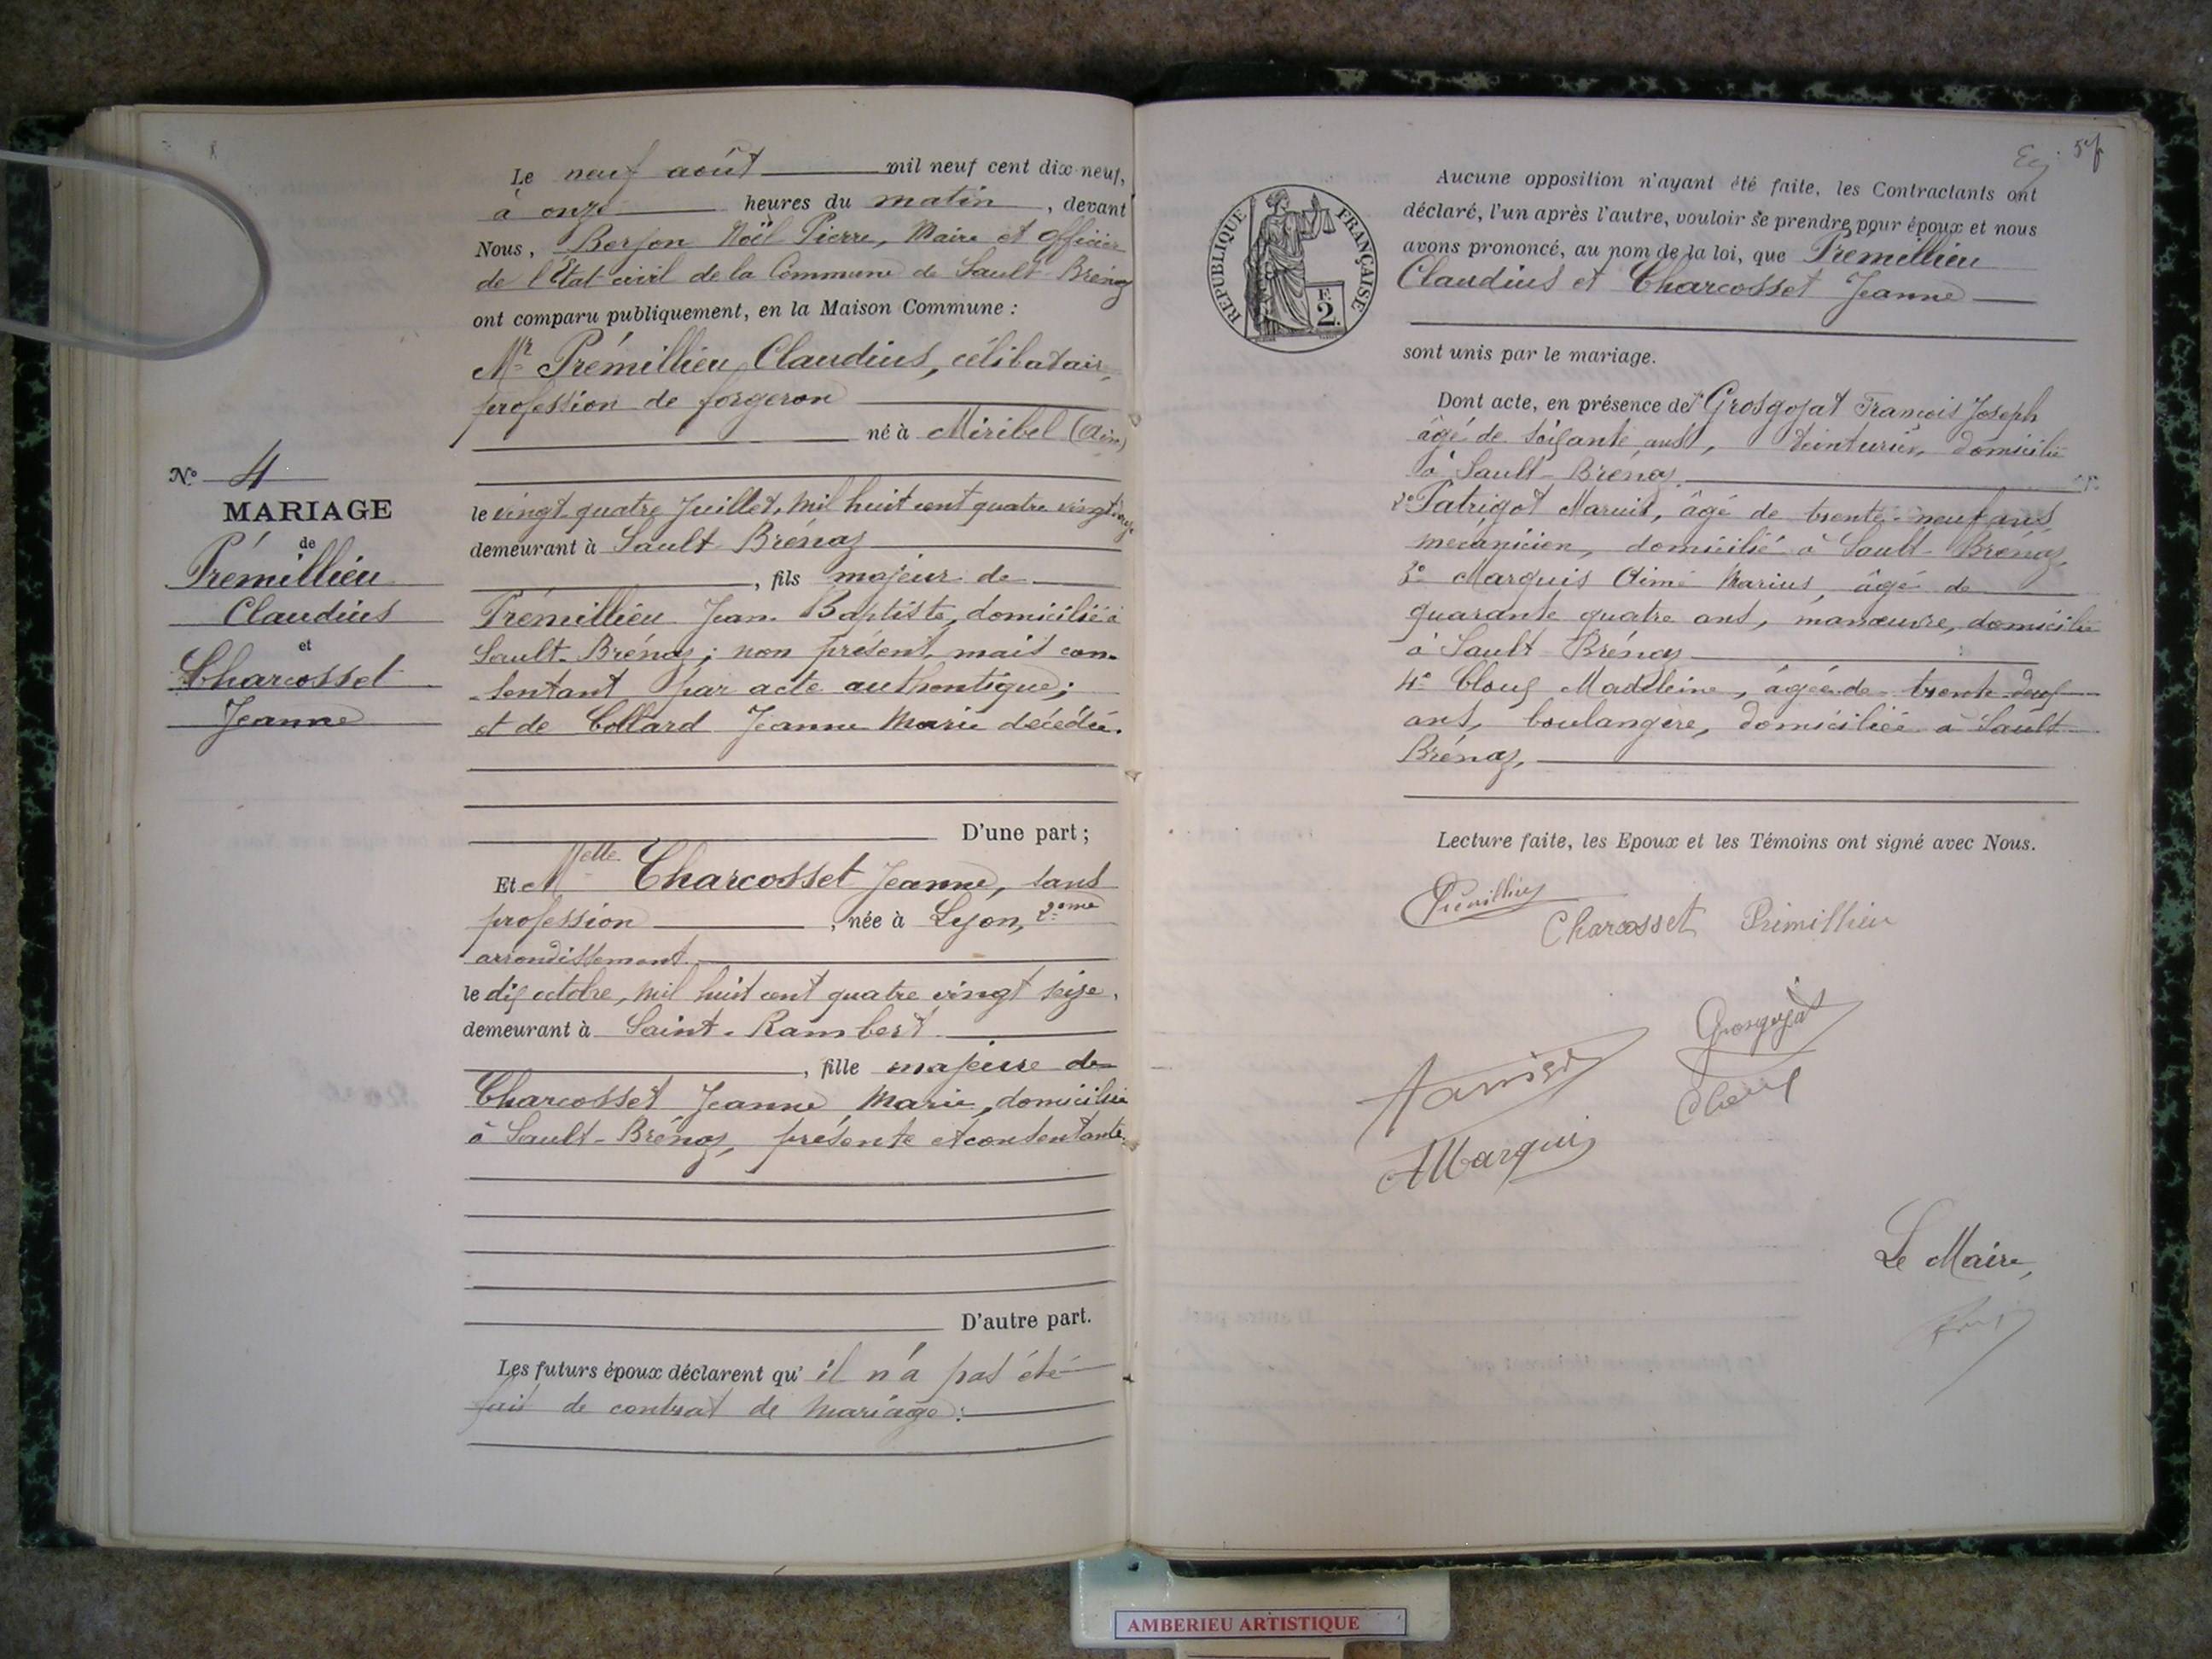 Le neuf août mil neuf cent dix-neuf,
à onze heures du matin, devant
Nous, Berjon Noël Pierre, Maire et officier
de l'État civil de la Commune de Sault-Brénaz
ont comparu publiquement, en la Maison Commune :
Mr Prémillieu Claudius, célibataire,
profession de forgeron
né à Miribel (Ain)
le vingt quatre Juillet, mil huit cent quatre vingt
demeurant à Sault-Brénaz
, fils majeur de
Prémillieu Jean Baptiste, domicilié à
Sault-Brénaz ; non présent, mais con-
-sentant par acte authentique ;
et de Collard Jeanne Marie décédée.
D'une part ;
Et Melle Charcosset Jeanne, sans
profession , née à Lyon, 2eme
arrondissement
le dix octobre, mil huit cent quatre vingt seize,
demeurant à Saint-Rambert
, fille majeure de
Charcosset Jeanne Marie, domiciliée
à Sault-Brénaz, présente et consentante.
D'autre part.
Les futurs époux déclarent qu'il n'a pas été
fait de contrat de mariage.
N° 4
MARIAGE
de
Prémillieu
Claudius
et
Charcosset
Jeanne
RÉPUBLIQUE FRANÇAISE
F.
2.
Aucune opposition n'ayant été faite, les Contractants ont
déclaré, l'un après l'autre, vouloir se prendre pour époux et nous
avons prononcé, au nom de la loi, que Prémillieu
Claudius et Charcosset Jeanne
sont unis par le mariage.
Dont acte, en présence de 1° Grosgojat François Joseph
âgé de soixante ans, teinturier, domicilié
à Sault-Brénaz
2° Patrigot Marius, âgé de trente-neuf ans,
mécanicien, domicilié à Sault-Brénaz,
3° Marquis Aimé Marius, âgé de
quarante quatre ans, manœuvre, domicilié
à Sault Brénaz
4° Clouz Madeleine, âgée de trente deux
ans, boulangère, domiciliée à Sault
Brénaz,
Lecture faite, les Epoux et les Témoins ont signé avec Nous.
Prémillieu
Charcosset Prémillieu
Grosgojat
A Marquis
Le Maire,
AMBERIEU ARTISTIQUE